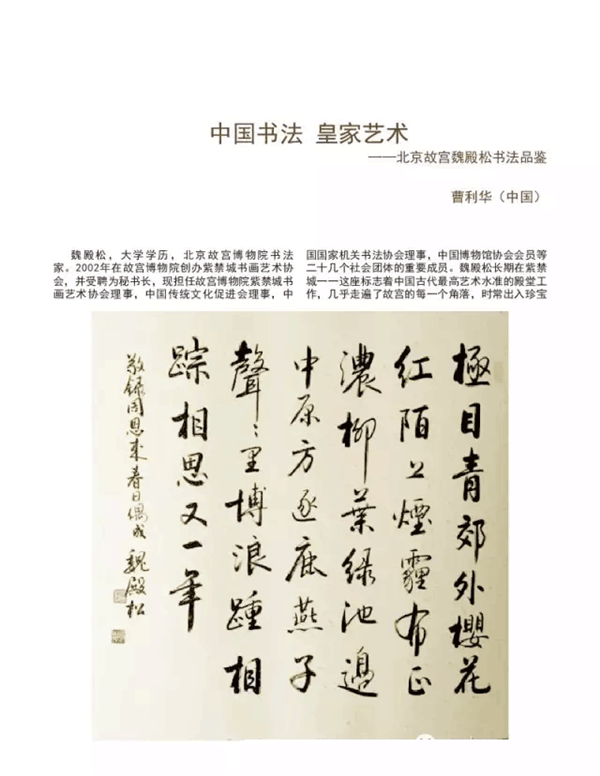 中国书法 皇家艺术
——北京故宫魏殿松书法品鉴
曹利华（中国）
魏殿松，大学学历，北京故宫博物院书法
家。2002年在故宫博物院创办紫禁城书画艺术协
会，并受聘为秘书长，现担任故宫博物院紫禁城书
画艺术协会理事，中国传统文化促进会理事，中
国国家机关书法协会理事，中国博物馆协会会员等
二十几个社会团体的重要成员。魏殿松长期在紫禁
城——这座标志着中国古代最高艺术水准的殿堂工
作，几乎走遍了故宫的每一个角落，时常出入珍宝
極目青郊外櫻花
红陌上煙霾布正
濃柳葉绿池邊
中原方逐鹿燕子
聲〻里博浪踵相
踪相思又一年
敬録周恩来春日偶成 魏殿松